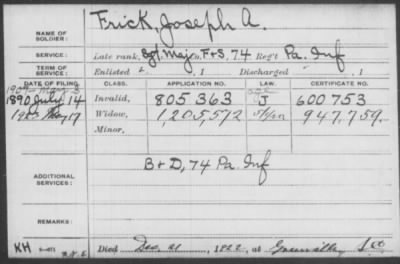 NAME OF SOLDIER: Frick, Joseph A.
SERVICE: Late rank, Sgt. Maj., F+S, 74 Reg't Pa. Inf
TERM OF SERVICE: Enlisted , 1 Discharged , 1
DATE OF FILING. CLASS. APPLICATION NO. LAW. CERTIFICATE NO.
1890 July 14 Invalid, 805363 J 600753
17 Widow, 1,205,572 947,759
Minor,
ADDITIONAL SERVICES: B+D, 74 Pa Inf
REMARKS:
KH Died Dec. 21, 1922, at S.C.